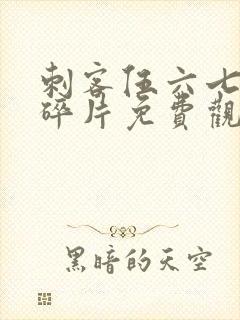 刺客伍六七
碎片免費觀
黑暗的天空